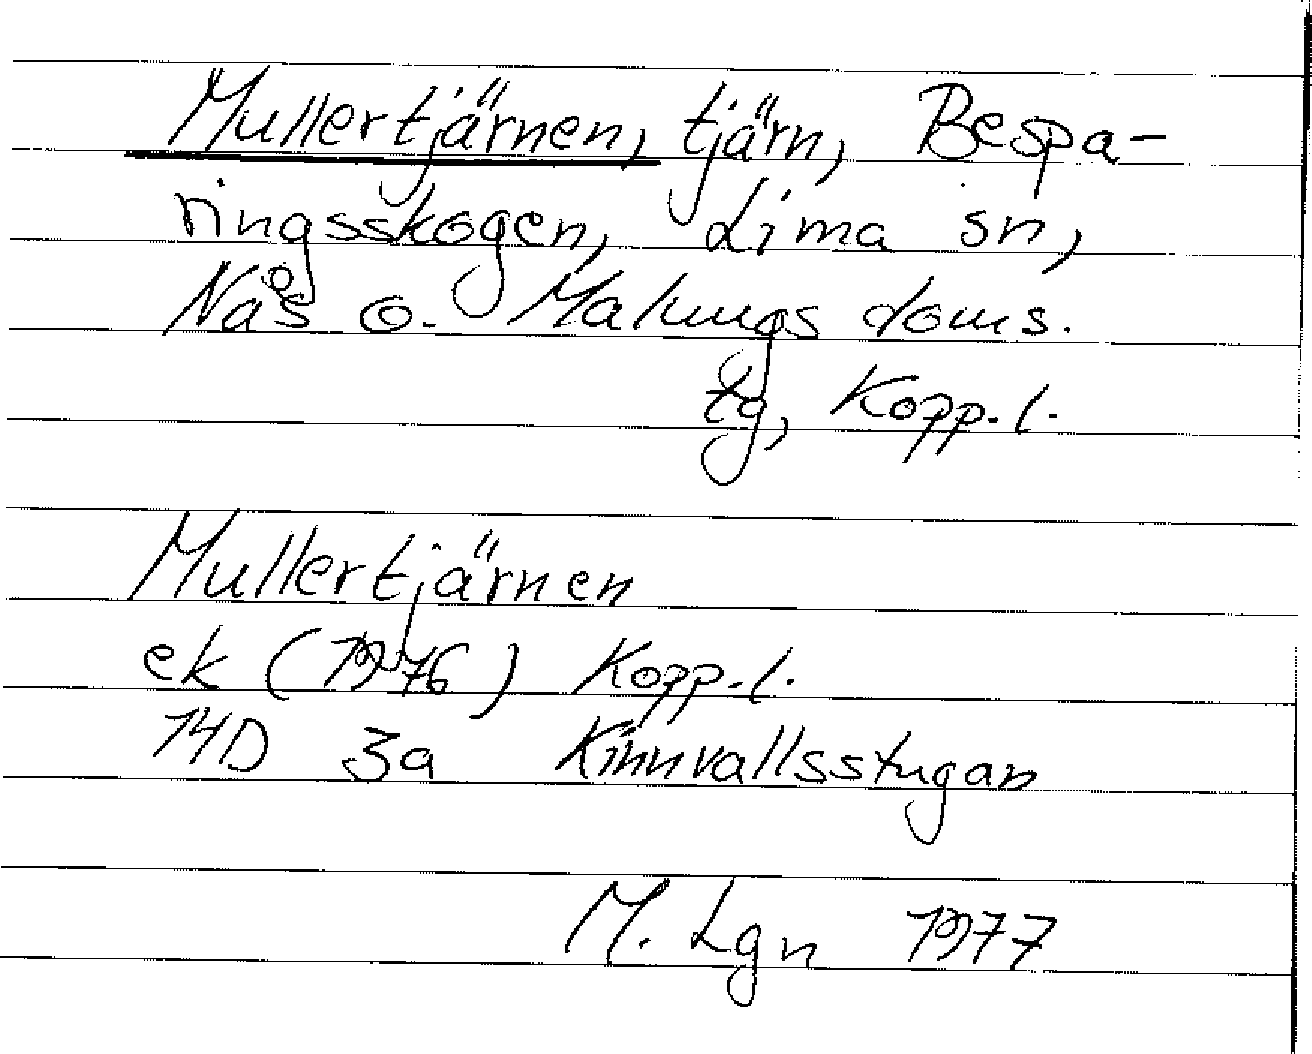 Mullertjärnen, tjärn, Bespa-
ringsskogen, Lima sn,
Nås o. Malungs doms.
tg, Kopp. l.
Mullertjärnen
ek (1976) Kopp. l.
14D 3a Kinnvallsstugan
M. Lgn 1977